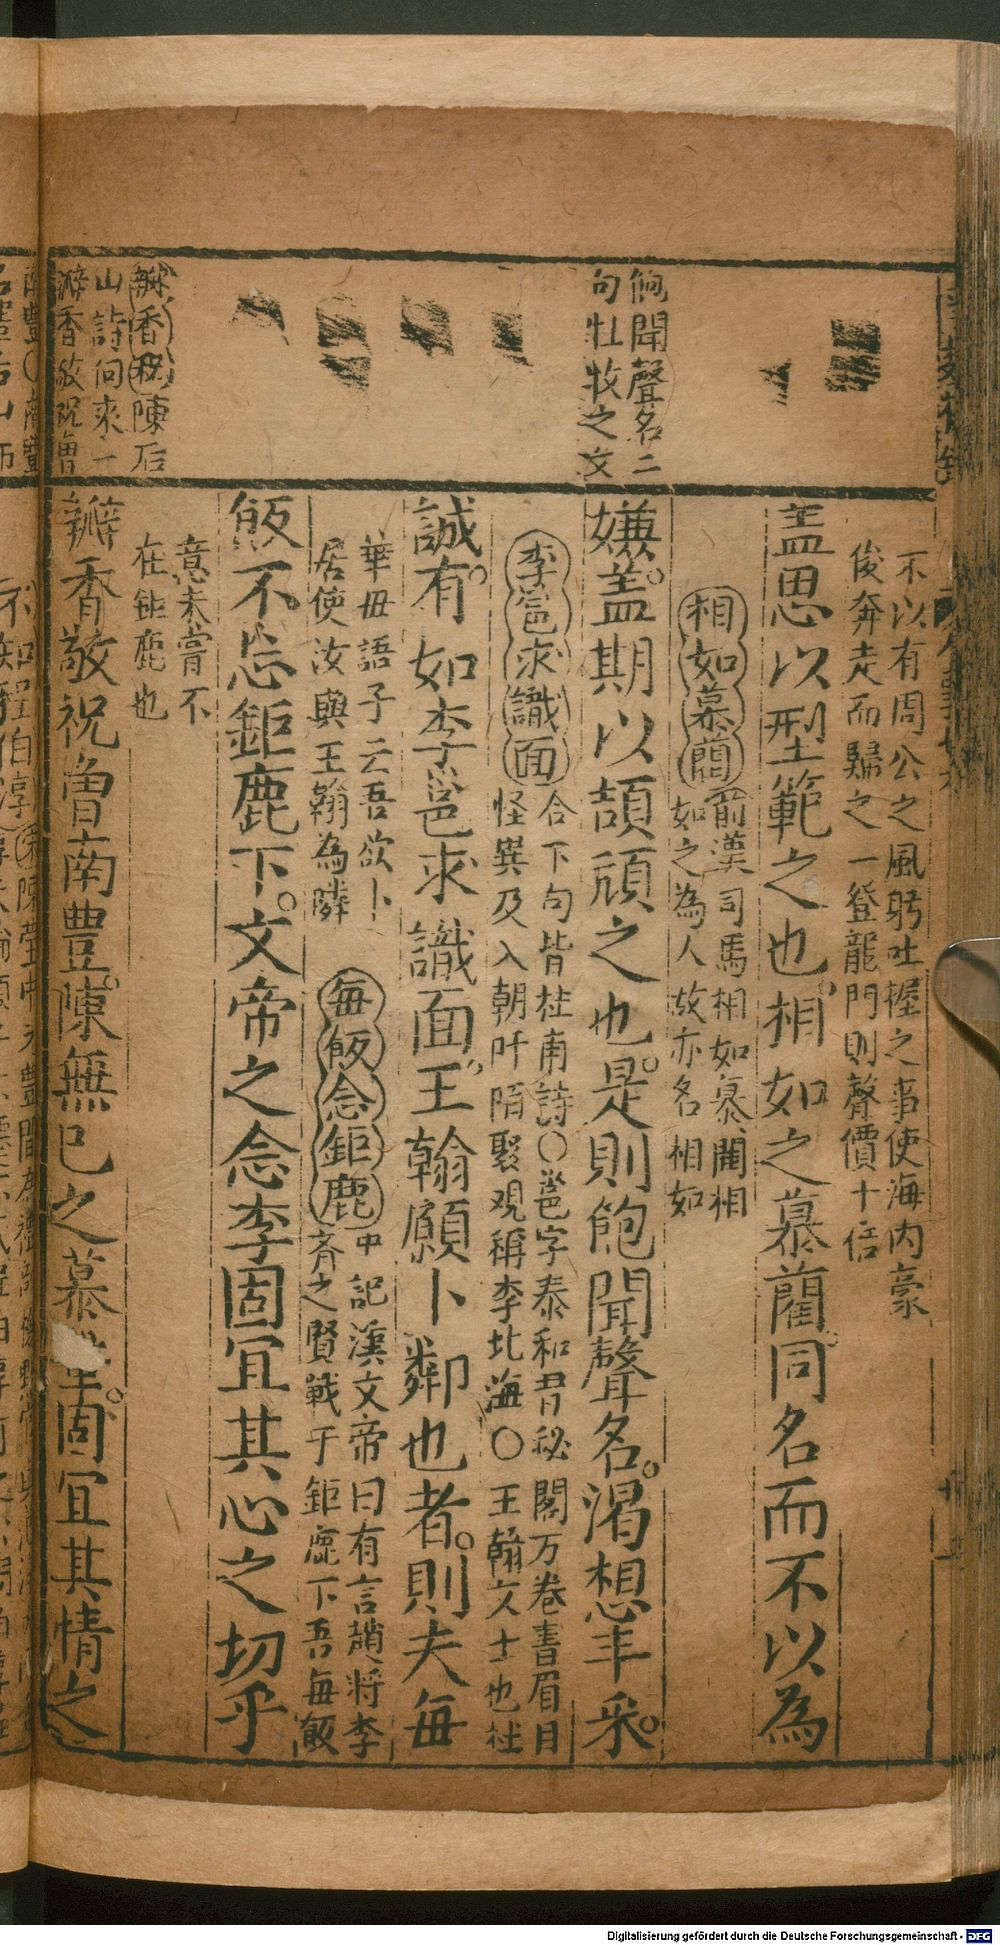 飽聞聲名二
句杜牧之文
瓣香祝陳后
山詩向來一
瓣香敬祝魯
不以有周公之風躬吐握之事使海内豪
俊奔走而歸之一登龍門則聲價十倍
盖思以型範之也相如之慕藺同名而不以為
相如慕藺前漢司馬相如慕藺相
如之為人故亦名相如
嫌盖期以頡頏之也是則飽聞聲名渴想丰采
李邕求識面合下句皆杜甫詩〇邕字泰和君秘閣万卷書眉目
怪異及入朝阡陌聚观稱李北海〇王翰文士也杜
誠有如李邕求識面王翰願卜鄰也者則夫每
華母語子云吾欲卜
居使汝與王翰為隣
每飯念鉅鹿中記漢文帝曰有言趙將李
齊之賢戰于鉅鹿下吾每飯
飯不忘鉅鹿下文帝之念李固宜其心之切乎
意未嘗不
在鉅鹿也
瓣香敬祝魯南豐陳無已之慕固宜其情之
Digitalisierung gefördert durch die Deutsche Forschungsgemeinschaft - DFG